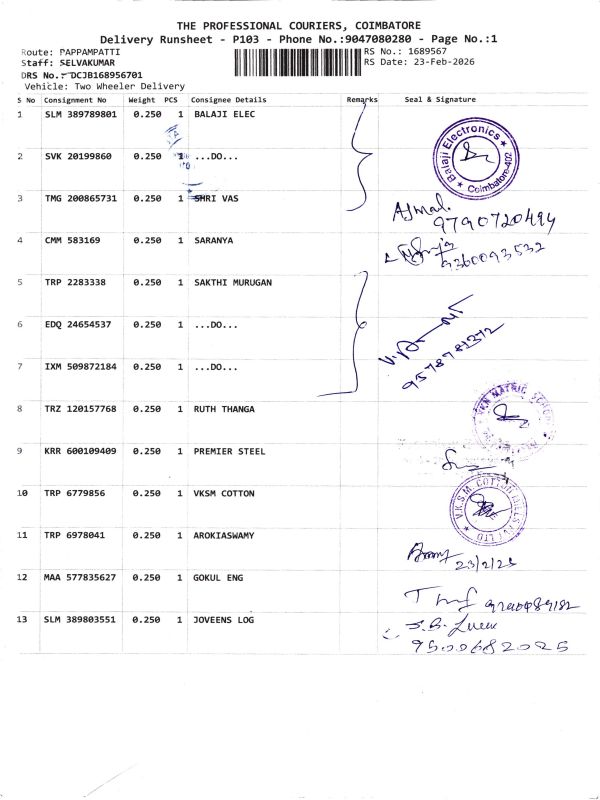 THE PROFESSIONAL COURIERS, COIMBATORE
Delivery Runsheet - P103 - Phone No.:9047080280 - Page No.:1
Route: PAPPAMPATTI
RS No.: 1689567
Staff: SELVAKUMAR
RS Date: 23-Feb-2026
DRS No.: DCJB168956701
Vehicle: Two Wheeler Delivery
S No Consignment No Weight PCS Consignee Details Remarks Seal & Signature
1 SLM 389789801 0.250 1 BALAJI ELEC
Balaji Electronics
Coimbatore-402
2 SVK 20199860 0.250 1 ...DO...
3 TMG 200865731 0.250 1 SHRI VAS
Ajmal.
9790720494
4 CMM 583169 0.250 1 SARANYA
9360093532
5 TRP 2283338 0.250 1 SAKTHI MURUGAN
6 EDQ 24654537 0.250 1 ...DO...
7 IXM 509872184 0.250 1 ...DO...
9578781372
8 TRZ 120157768 0.250 1 RUTH THANGA
MATRIC
9 KRR 600109409 0.250 1 PREMIER STEEL
10 TRP 6779856 0.250 1 VKSM COTTON
V.K.S.M. COTTON MILLS PVT LTD
11 TRP 6978041 0.250 1 AROKIASWAMY
23/2/26
12 MAA 577835627 0.250 1 GOKUL ENG
13 SLM 389803551 0.250 1 JOVEENS LOG
9500682025